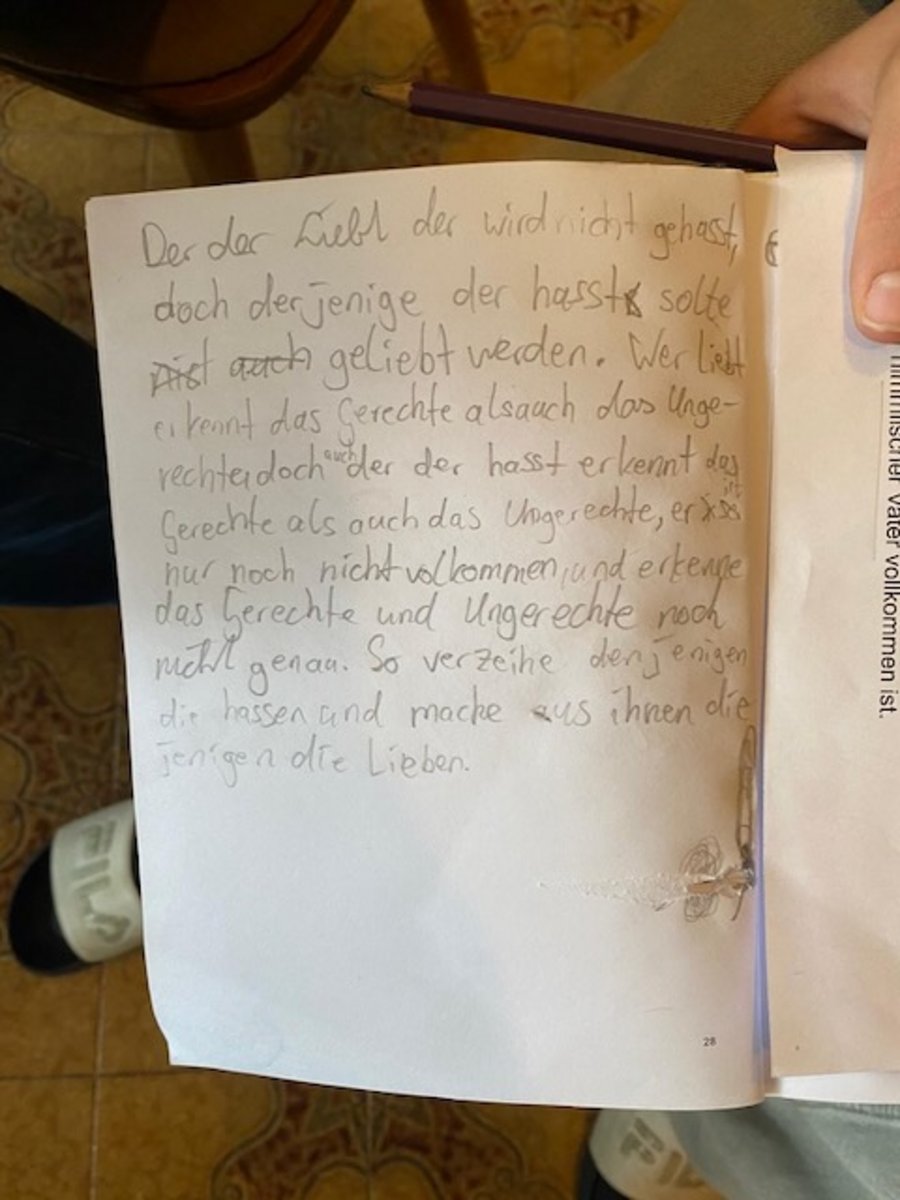 Der der Liebt der wird nicht gehasst,
doch derjenige der hasst solte
nist auch geliebt werden. Wer liebt
erkennt das Gerechte alsauch das Unge-
rechte, doch auch der der hasst erkennt das
Gerechte als auch das Ungerechte, er ist
nur noch nicht volkommen, und erkenne
das Gerechte und Ungerechte noch
nicht genau. So verzeihe denjenigen
die hassen und mache aus ihnen die
jenigen die Lieben.
28
himmlischer Vater vollkommen ist.
FILA